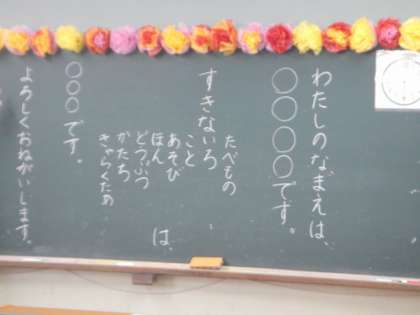 わたしのなまえは、
〇〇〇〇です。
すきないろ
たべもの
こと
あそび
ほん
どうぶつ
かたち
きゃらくたあ
は、
〇〇〇です。
よろしくおねがいします。